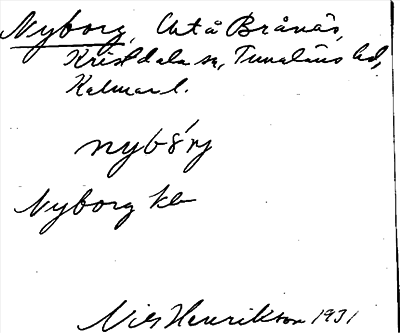 Nyborg, Utå Brånäs,
Kristdala sn, Tunaläns hd,
Kalmar l.
nybǫ́rj
Nyborg kb
Nils Henrikson 1931